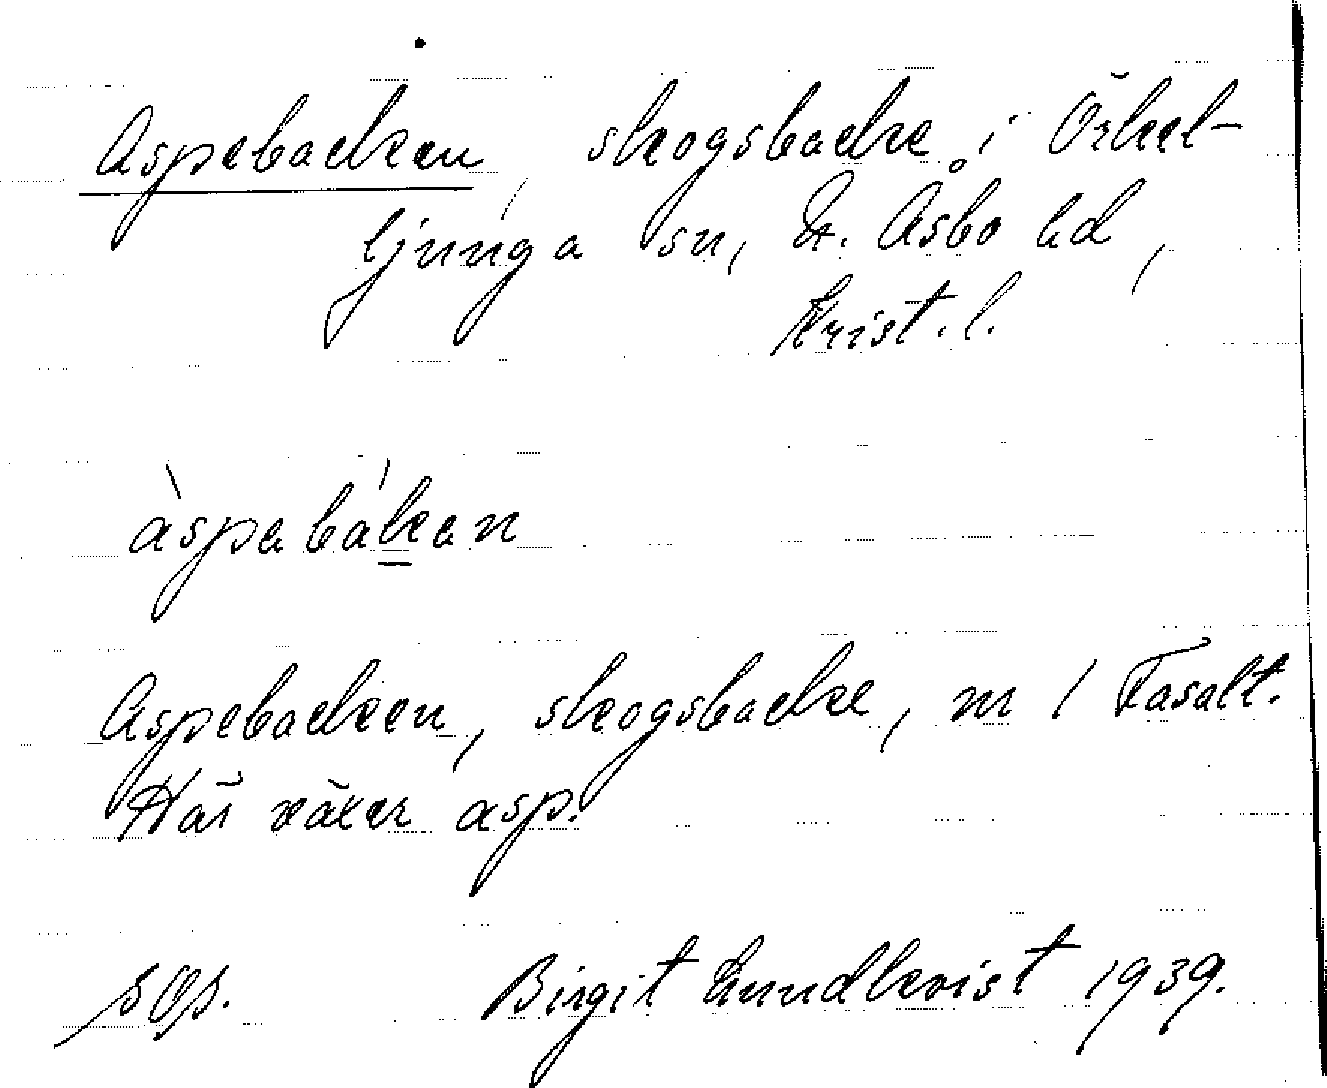 Aspebacken, skogsbacke i Örkel-
ljunga sn, N. Åsbo hd,
Krist. l.
àspabákan
Aspebacken, skogsbacke, m 1 Fasalt.
Här växer asp.
Birgit Lundkvist 1939.